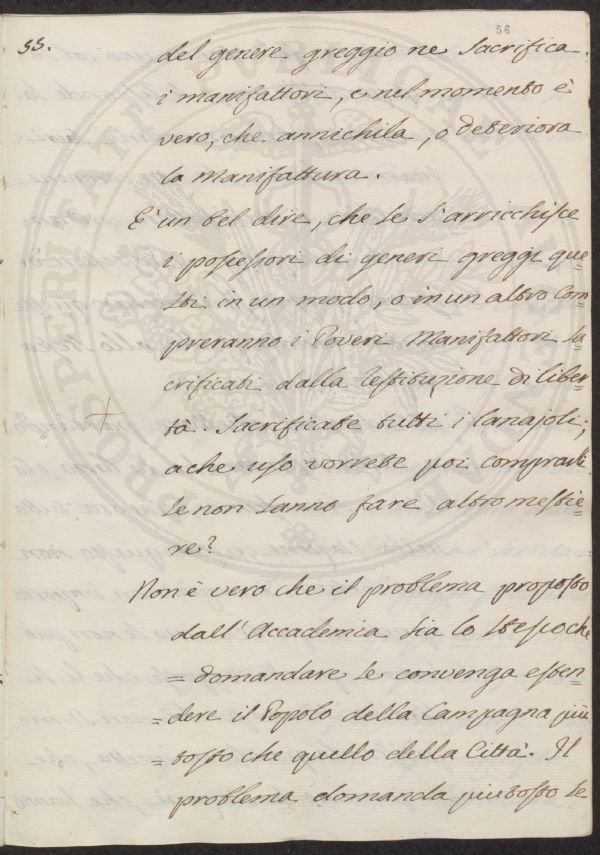 56
55.
del genere greggio ne sacrifica
i manifattori, e nel momento è
vero, che annichila, o deteriora
la manifattura.
E' un bel dire, che se s'arricchisce
i possessori di generi greggi que=
sti in un modo, o in un altro com
preranno i Poveri Manifattori sa=
crificati dalla restituzione di liber=
tà. Sacrificate tutti i lanajoli;
a che uso vorrete poi comprarli
se non sanno fare altro mestie=
re?
Non è vero che il problema proposto
dall'Accademia sia lo stesso che
= domandare se convenga esten=
= dere il Popolo della Campagna più
= tosto che quello della Città. Il
problema domanda piutosto se